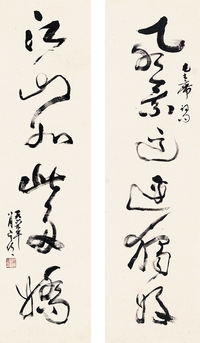 風景這邊獨好
毛主席詞句
江山如此多嬌